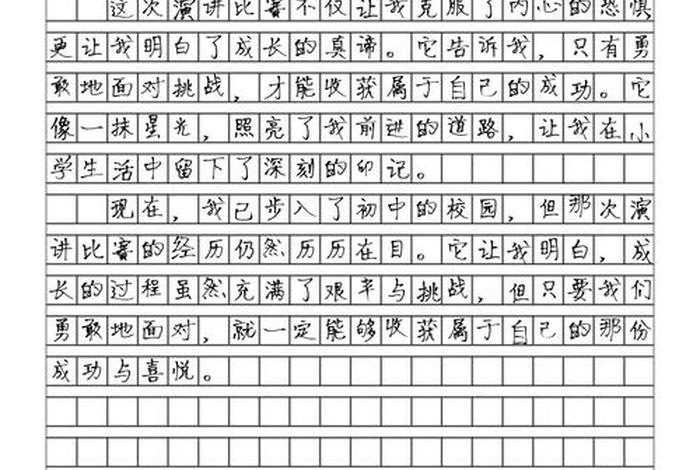 这次演讲比赛不仅让我克服了内心的恐惧
更让我明白了成长的真谛。它告诉我,只有勇
敢地面对挑战,才能收获属于自己的成功。它
像一抹星光,照亮了我前进的道路,让我在小
学生活中留下了深刻的印记。
现在,我已步入了初中的校园,但那次演
讲比赛的经历仍然历历在目。它让我明白,成
长的过程虽然充满了艰辛与挑战,但只要我们
勇敢地面对,就一定能够收获属于自己的那份
成功与喜悦。